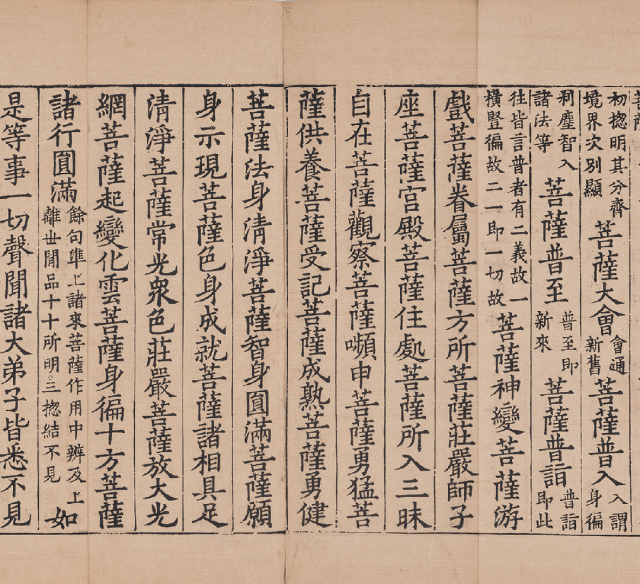 初揔明其分齊境界次別顯菩薩大會會通新舊菩薩普入入謂身徧
利塵智入諸法等菩薩普至普至即新來菩薩普詣普詣即此
往皆言普者有二義故一橫豎徧故二一即一切故菩薩神變菩薩游
戲菩薩眷屬菩薩方所菩薩莊嚴師子
座菩薩宮殿菩薩住處菩薩所入三昧
自在菩薩觀察菩薩嚬申菩薩勇猛菩
薩供養菩薩受記菩薩成熟菩薩勇健
菩薩法身清淨菩薩智身圓滿菩薩願
身示現菩薩色身成就菩薩諸相具足
清淨菩薩常光衆色莊嚴菩薩放大光
網菩薩起變化雲菩薩身徧十方菩薩
諸行圓滿餘句準上諸來菩薩作用中辨及上離世間品十十所明○三揔結不見如
是等事一切聲聞諸大弟子皆悉不見